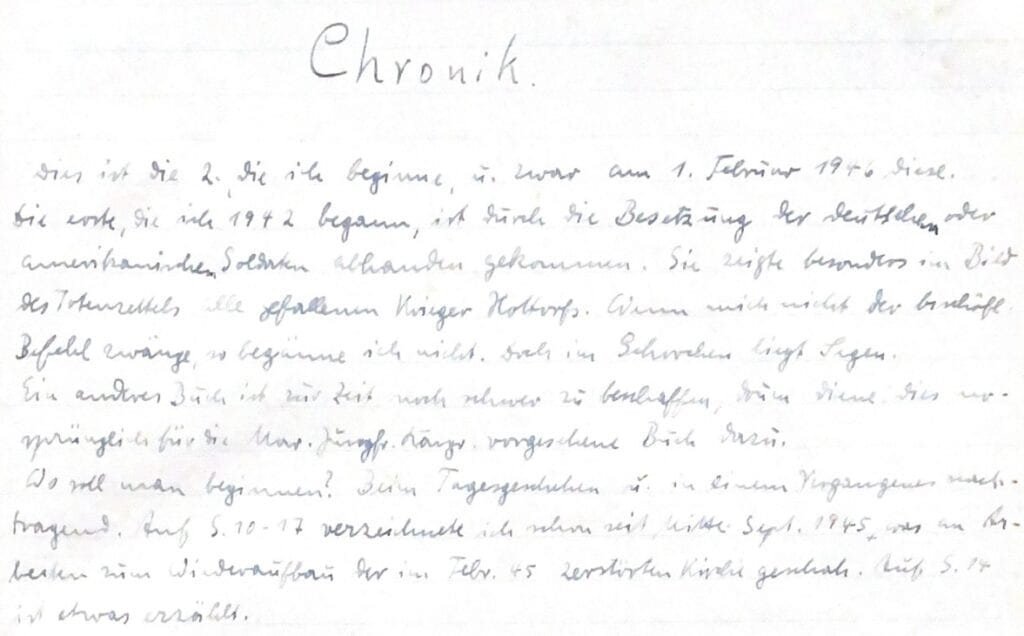 Chronik.
Dies ist die 2., die ich beginne, u. zwar am 1. Februar 1946 diese.
Die erste, die ich 1942 begann, ist durch die Besetzung der deutschen oder
amerikanischen Soldaten abhanden gekommen. Sie zeigte besonders im Bild
des Totenzettels alle gefallenen Krieger Hottorfs. Wenn mich nicht der bischöfl.
Befehl zwänge, so begänne ich nicht. Doch im Gehorchen liegt Segen.
Ein anderes Buch ist zur Zeit noch schwer zu beschaffen, drum diene dies ur-
sprünglich für die Mar. Jungfr. Kongr. vorgesehene Buch dazu.
Wo soll man beginnen? Beim Tagesgeschehen u. in einem Vergangenes nach-
tragend. Auf S. 10-17 verzeichnete ich schon seit Mitte Sept. 1945, was an Ar-
beiten zum Wiederaufbau der im Febr. 45 zerstörten Kirche geschah. Auf S. 14
ist etwas erzählt.